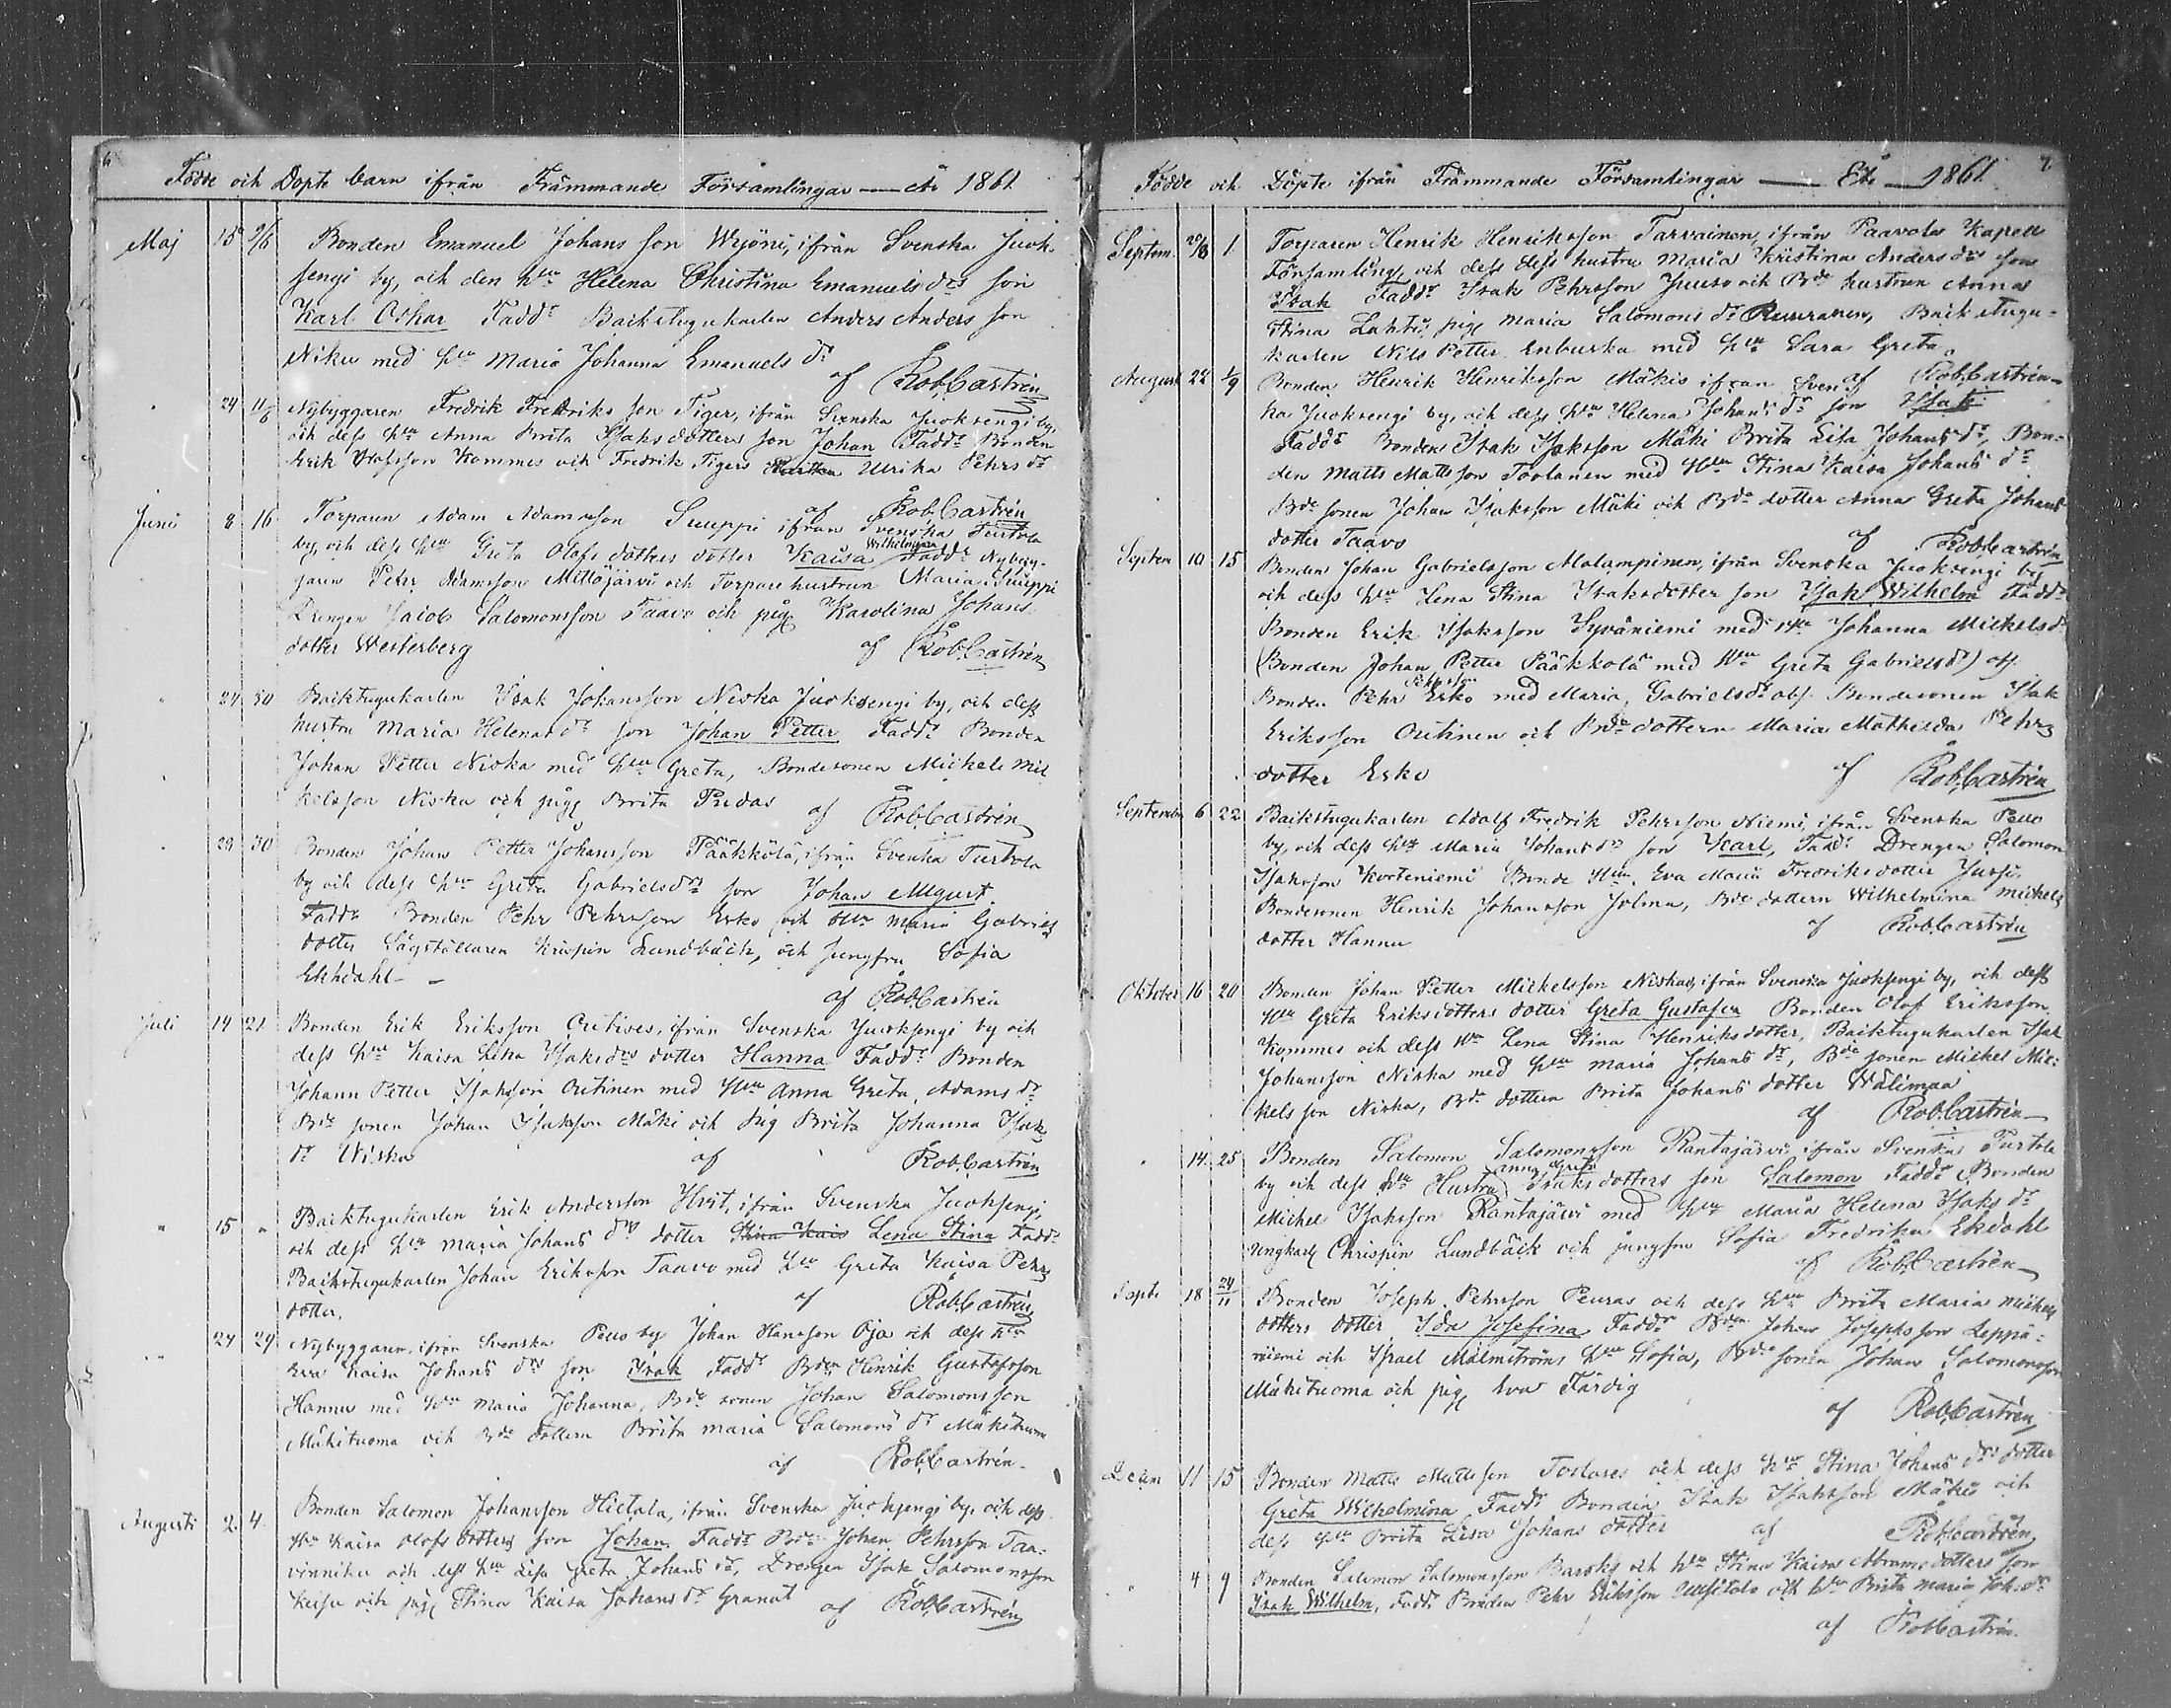 6
Födde och Döpte barn ifrån Främmande Församlingar — År 1861
Maj 15 9/6 Bonden Emanuel Johansson Wyöni, ifrån Svenska Juok-
sengi by, och den hu Helena Christina Emanuelsdrs son
Karl Oskar Faddr Backstugukarlen Anders Andersson
Niku med hu Maria Johanna Emanuels dr
af Rob. Castrén
24 Nybyggaren Fredrik Fredriksson Tiger, ifrån Svenska Juoksengi by,
och dess hu Anna Brita Isaksdotters son Johan Faddr Bonden
Erik Olofsson Kommes och Fredrik Tigers Ulrika Pehrs dr
af Rob. Castrén
Juni 8 16 Torparen Adam Adamsson Suuppi ifrån Svenska Turtola
by, och dess hu Greta Olofsdotters dotter Kaisa Wilhelmina Faddr Nybyg-
garen Pehr Adamsson Mittöjärvi och Torparehustrun Maria Suuppi
Drengen Jacob Salomonsson Taavo och pig Karolina Johans
dotter Westerberg af Rob. Castrén
24 30 Backstugukarlen Isak Johansson Niska Juoksengi by, och dess
hustru Maria Helena dr son Johan Petter Faddr Bonden
Johan Petter Niska med hu Greta, Bondesonen Mickel Mic
kelsson Niska och pig Brita Pudas af Rob. Castrén
29 30 Bonden Johan Petter Johansson Pääkkölä, ifrån Svenska Turtola
by och dess hu Greta Gabrielsdrs son Johan August.
Faddr Bonden Pehr Pehrsson Erko och Hu Maria Gabriels
dotter Sågställaren Krispin Lundbäck, och Jungfru Sofia
Ekhdahl —
af Rob. Castrén
Juli 14 21 Bonden Erik Eriksson Outines, ifrån Svenska Juoksengi by och
dess hu Kaisa Lisa Isaksdrs dotter Hanna Faddr Bonden
Johann Petter Isaksson Outinen med Hu Anna Greta Adams dr
Bde sonen Johan Isaksson Mäki och Pig Brita Johanna Isaks
dr Niska af Rob. Castrén
" 15 " Backstugukarlen Erik Andersson Hvit, ifrån Svenska Juoksengi,
och dess hu Maria Johans drs dotter Stina Kais Lena Stina Faddr
Backstugukarlen Johan Eriksson Taavo med hu Greta Kaisa Pehrs
dotter. af Rob. Castrén
24 29 Nybyggaren, ifrån Svenska Pello by Johan Hansson Oja och dess hu
Eva Kaisa Johans drs son Isak Faddr Bden Henrik Gustafsson
Hannu med hu Maria Johanna, Bde sonen Johan Salomonsson
Mäkituoma och Bde dottern Brita Maria Salomons dr Mäkituoma
af Rob. Castrén
Augusti 2 4 Bonden Salomon Johansson Hietala, ifrån Svenska Juoksengi by, och dess
Hu Kaisa Olofsdotters son Johan Faddr Bde Johan Pehrsson Taa-
vinniku och dess hu Lisa Greta Johans dr, Drengen Isak Salomonsson
Keisu och pig Stina Kaisa Johans dr Granat af Rob. Castrén
7
Födde och Döpte ifrån Främmande Församlingar — År — 1861
Septem. 20/8 1 Torparen Henrik Henriksson Tarvainen, ifrån Paavola Kapell
Församling, och dess dess hustru Maria Kristina Anders drs son
Isak Faddr Isak Pehrsson Juuso och Bde hustrun Anna
Stina Lahti, pig Maria Salomons dr Ruuranen, Backstugu-
karlen Nils Petter Enbuska med hu Sara Greta
af Rob. Castrén
August 22 1/9 Bonden Henrik Henriksson Mäkis ifrån Sven
ka Juoksengi by, och dess hu Helena Johans dr son Isak
Faddr Bonden Isak Isaksson Mäki Brita Lisa Johans dr, Bon-
den Matts Mattsson Toolanen med Hu Stina Kaisa Johans dr
Bde sonen Johan Isaksson Mäki och Bde dotter Anna Greta Johans
dotter Taavo af Rob. Castrén
Septem 10 15 Bonden Johan Gabrielsson Molampinen, ifrån Svenska Juoksengi by
och dess hu Lena Stina Isaksdotter son Isak Wilhelm Faddr
Bonden Erik Isaksson Syväniemi med Hu Johanna Mickelsdr
(Bonden Johan Petter Pääkkölä med Hu Greta Gabrielsdr) obs.
Bonden Pehr Pehrsson Erko med Maria Gabrielsdr obs. Bondesonen Isak
Eriksson Outinen och Bde dottern Maria Mathilda Pehrs
dotter Erko af Rob. Castrén
September 6 22 Backstugukarlen Adolf Fredrik Pehrsson Niemi, ifrån Svenska Pello
by, och dess hu Maria Johans drs son Karl, Faddr Drengen Salomon
Isaksson Korteniemi Bonde Hu Eva Maria Fredriksdotter Jussi.
Bondesonen Henrik Johansson Jolma, Bde dottern Wilhelmina Mickels
dotter Hannu af Rob. Castrén
Oktober 16 20 Bonden Johan Petter Mickelsson Niska, ifrån Svenska Juoksengi by, och dess
Hu Greta Eriksdotters dotter Greta Gustafva Bonden Olof Eriksson
Kommes och dess Hu Lena Stina Henriksdotter, Backstugukarlen Isak
Johansson Niska med hu Maria Johans dr, Bde sonen Mickel Mic-
kelsson Niska, Bde dottern Brita Johans dotter Wälimaa
af Rob. Castrén
" 14 25 Bonden Salomon Salomonsson Rantajärvi ifrån Svenska Turtola
by och dess hu Hustru Anna Greta Isaksdotters son Salomon Faddr Bonden
Mickel Isaksson Rantajärvi med hu Maria Helena Isaks dr
ungkarl Chrispin Lundbäck och jungfru Sofia Fredrika Ekdahl
af Rob. Castrén
Septr 18 24/11 Bonden Joseph Pehrsson Peuras och dess hu Brita Maria Mickels
dotters dotter Ida Josefina Faddr Bden Johan Josephsson Leppä-
niemi och Israel Malmströms hu Sofia, Bde sonen Johan Salomonsson
Mäkituoma och pig Eva Färdig
af Rob. Castrén
Decem 11 15 Bonden Matts Mattsson Toolanes och dess hu Stina Johans drs dotter
Greta Wilhelmina Faddr Bonden Isak Isaksson Mäki och
dess hu Brita Lisa Johans dotter af Rob. Castrén
" 4 9 Bonden Salomon Salomonsson Barsks och hu Stina Kaisa Abramsdotters son
Isak Wilhelm, Faddr Bonden Pehr Eriksson Uusitalo och hu Brita Maria Joh. dr
af Rob. Castrén.